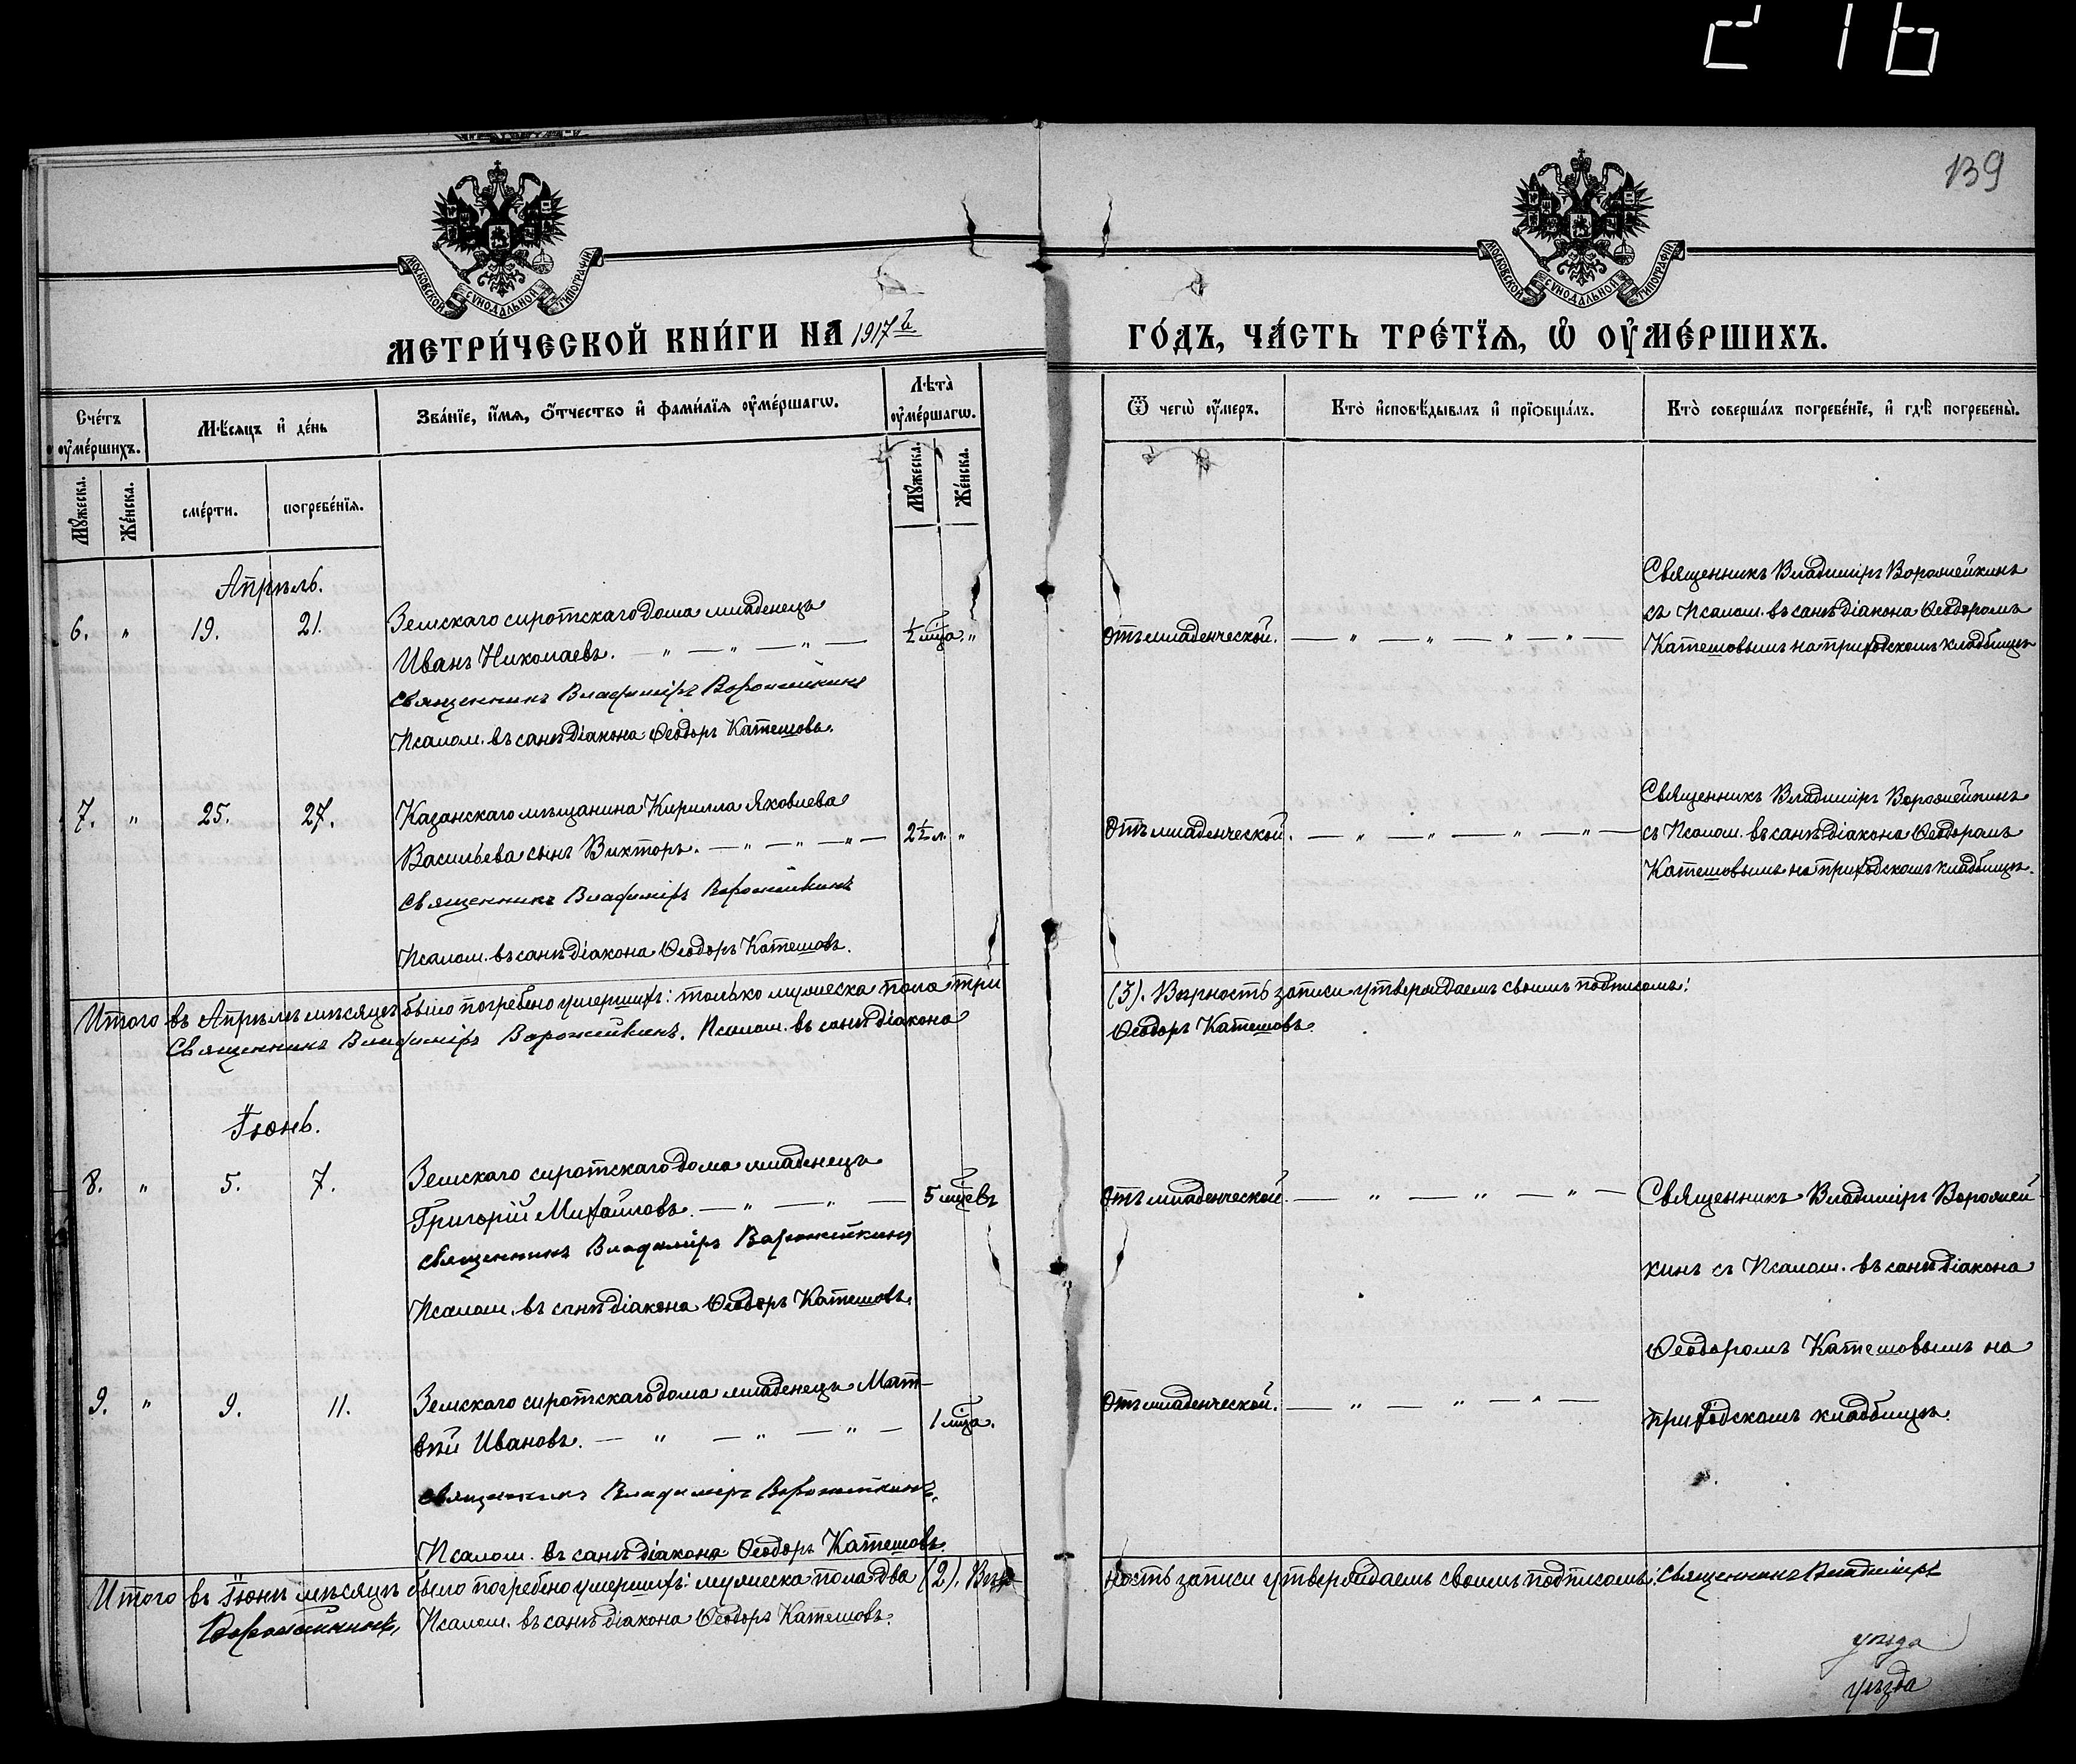 216
139
МОСКОВСКОЙ СѴНОДАЛЬНОЙ ТИПОГРАФІИ
МОСКОВСКОЙ СѴНОДАЛЬНОЙ ТИПОГРАФІИ
МЕТРИ́ЧЕСКОЙ КНИ́ГИ НА 1917й
ГО́ДЪ, ЧА́СТЬ ТРЕ́ТЇѦ, Ѽ ОУ҆МЕ́РШИХЪ.
Сче́тъ оу҆ме́ршихъ.
Мѣ́сяцъ и҆ де́нь
Зва́нїе, и҆́мѧ, ѻ҆́тчество и҆ фами́лїѧ оу҆ме́ршагѡ.
Лѣта̀ оу҆ме́ршагѡ.
Ѿ чегѡ̀ оу҆́меръ.
Кто̀ и҆сповѣ́дывалъ и҆ прїѡбща́лъ.
Кто̀ соверша́лъ погребе́нїе, и҆ гдѣ̀ погребены̀.
Мꙋ́жеска.
Же́нска.
сме́рти.
погребе́нїѧ.
Мꙋ́жеска.
Же́нска.
Апрѣль.
6. " 19. 21. Земскаго сиротскаго дома младенецъ
Иванъ Николаевъ. — " — " — " —
½ мца. "
Священникъ Владиміръ Ворожейкинъ
Псалом. въ санѣ діакона Ѳеодоръ Катешовъ.
Отъ младенческой. — " — " — " — " —
Священникъ Владиміръ Ворожейкинъ
съ Псалом. въ санѣ діакона Ѳеодоромъ
Катешовымъ на приходскомъ кладбищѣ
7. " 25. 27. Казанскаго мѣщанина Кирилла Яковлева
Васильева сынъ Викторъ. — " — " — " —
2½ л. "
Священникъ Владиміръ Ворожейкинъ
Псалом. въ санѣ діакона Ѳеодоръ Катешовъ.
Отъ младенческой. — " — " — " — " —
Священникъ Владиміръ Ворожейкинъ
съ Псалом. въ санѣ діакона Ѳеодоромъ
Катешовымъ на приходскомъ кладбищѣ.
Итого въ Апрѣлѣ мѣсяцѣ было погребено умершихъ: только мужеска пола три (3). Вѣрность записи утверждаемъ своимъ подписомъ:
Священникъ Владиміръ Ворожейкинъ. Псалом. въ санѣ діакона Ѳеодоръ Катешовъ.
Іюнь.
8. " 5. 7. Земскаго сиротскаго дома младенецъ
Григорій Михайловъ. — " — " —
5 мцевъ
Священникъ Владиміръ Ворожейкинъ
Псалом. въ санѣ діакона Ѳеодоръ Катешовъ.
Отъ младенческой. — " — " — " —
Священникъ Владиміръ Ворожей
кинъ съ Псалом. въ санѣ діакона
Ѳеодоромъ Катешовымъ на
приходскомъ кладбищѣ.
9. " 9. 11. Земскаго сиротскаго дома младенецъ Мат-
вѣй Ивановъ. — " — " — " —
1 мца.
Священникъ Владиміръ Ворожейкинъ.
Псалом. въ санѣ діакона Ѳеодоръ Катешовъ.
Отъ младенческой. — " — " — " —
Итого въ Іюнѣ мѣсяцѣ было погребено умершихъ: мужеска пола два (2). Вѣрность записи утверждаемъ своимъ подписомъ: Священникъ Владиміръ
Ворожейкинъ, Псалом. въ санѣ діакона Ѳеодоръ Катешовъ.
уѣзда
уѣзда